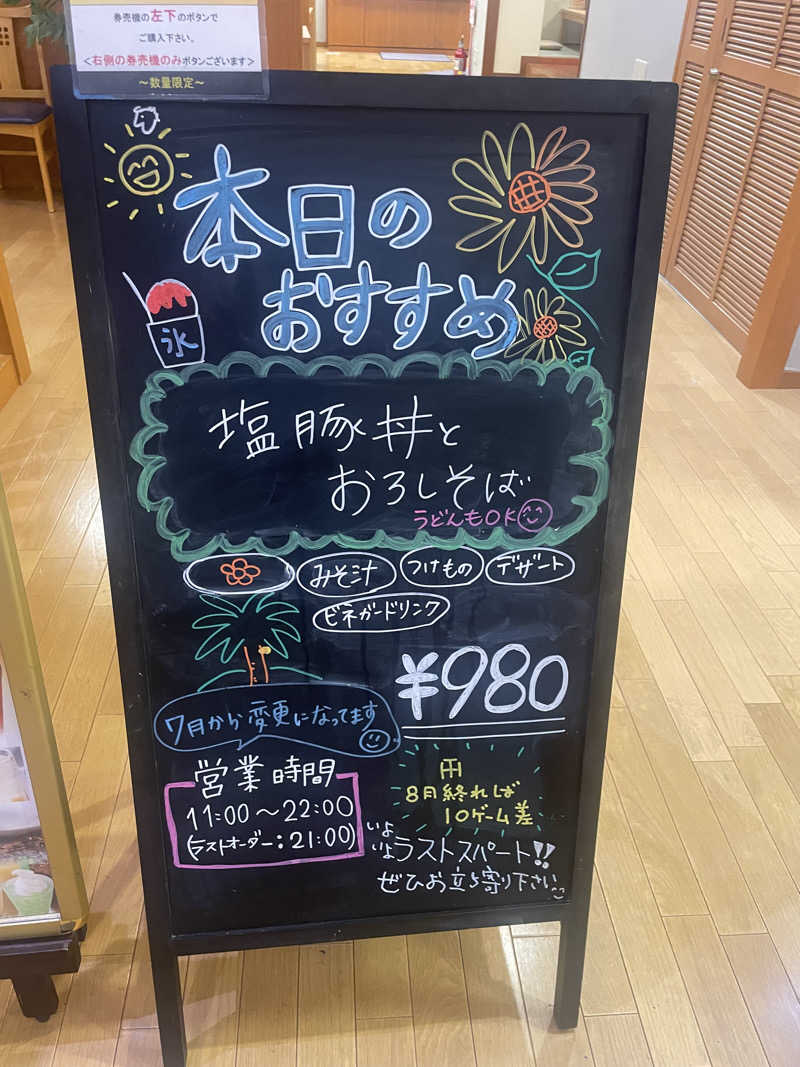 券売機の左下のボタンで
ご購入下さい。
<右側の券売機のみボタンございます>
～数量限定～
本日の
おすすめ
氷
塩豚丼と
おろしそば
うどんもOK
みそ汁
つけもの
デザート
ビネガードリンク
¥980
7月から変更になってます
営業時間
11:00～22:00
(ラストオーダー:21:00)
8月終れば
10ゲーム差
いよいよラストスパート!!
ぜひお立ち寄り下さい